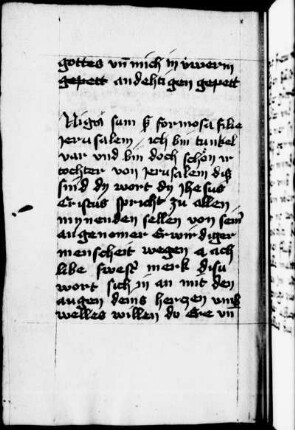 gottes vn̄ mich in úwerm
gepett andehtigen gepett
Nigra sum s₃ formosa filie
jerusalem ich bin tunkel
var und bin doch schön ir
tochter von jerusalem dis
sind dú wort dú jhesus
cristus spricht zu allen
mynenden sellen von sein̄
an genomer erwirdiger
menscheit wegen ach
libe swest᷑ merk disú
wort sich in an mit den
augen deins herczen vmb
welles willen do ere vn̄